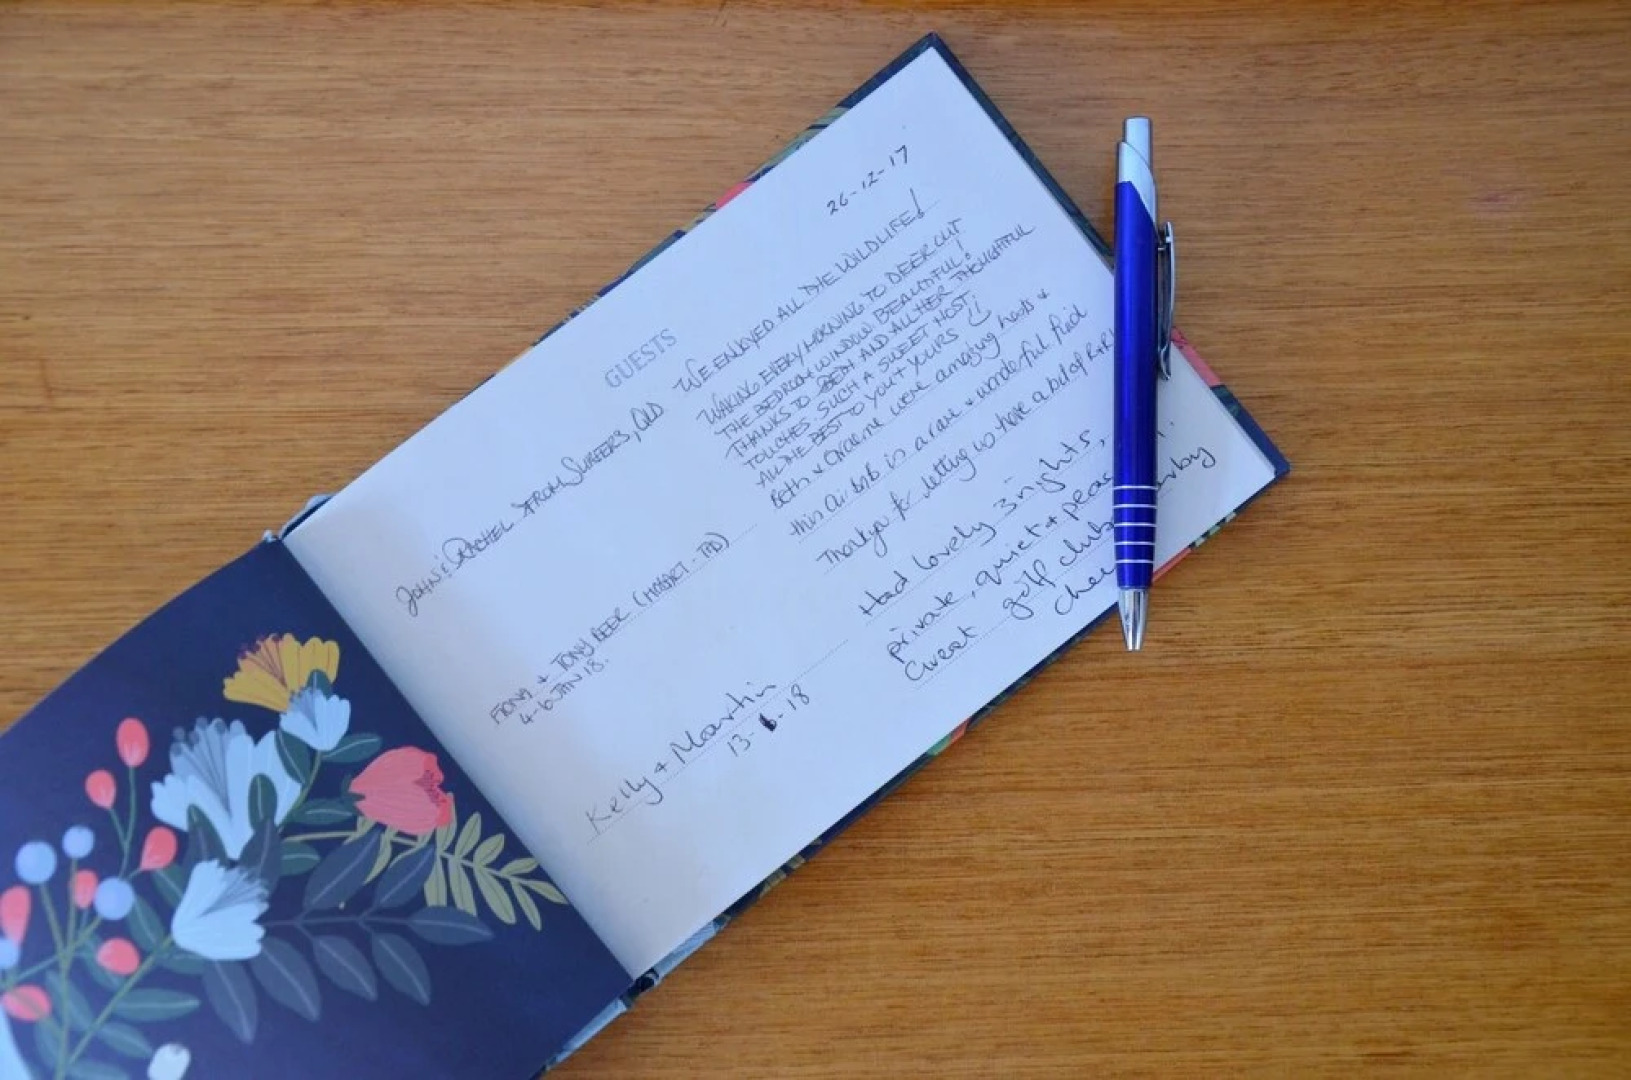 GUESTS
26-12-17
JOHN & RACHEL FROM SURFERS, QLD
WE ENJOYED ALL THE WILDLIFE!
WAKING EVERY MORNING TO DEER OUT
THE BEDROOM WINDOW. BEAUTIFUL!
THANKS TO BETH AND ALL HER THOUGHTFUL
TOUCHES. SUCH A SWEET HOST.
ALL THE BEST TO YOU + YOURS
FIONA + TONY BEER (HOBART - TAS)
4-6 JAN 18.
Beth & Graeme were amazing hosts &
this airbnb is a rare & wonderful find
Thankyou for letting us have a bit of R+R!
Kelly & Martin
13- -18
Had lovely 3 nights,
private, quiet &
Great golf club